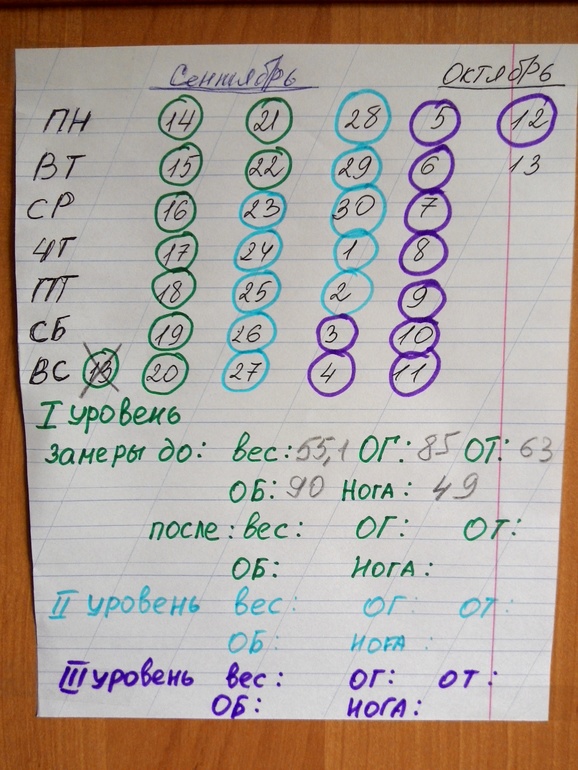 Сентябрь Октябрь
ПН 14 21 28 5 12
ВТ 15 22 29 6 13
СР 16 23 30 7
ЧТ 17 24 1 8
ПТ 18 25 2 9
СБ 19 26 3 10
ВС 13 20 27 4 11
I уровень
Замеры до: вес: 55,1 ОГ: 85 ОТ: 63
ОБ: 90 НОГА: 49
после: вес: ОГ: ОТ:
ОБ: НОГА:
II уровень вес: ОГ: ОТ:
ОБ: НОГА:
III уровень вес: ОГ: ОТ:
ОБ: НОГА: